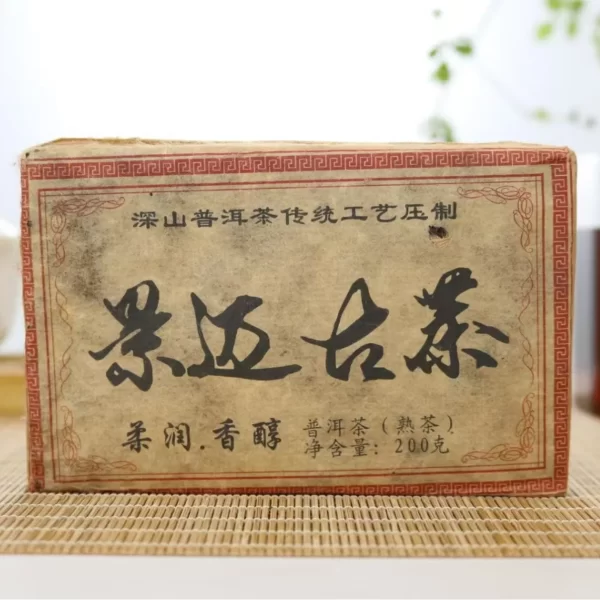 深山普洱茶传统工艺压制
景迈古茶
柔润.香醇
普洱茶（熟茶）
净含量：200克